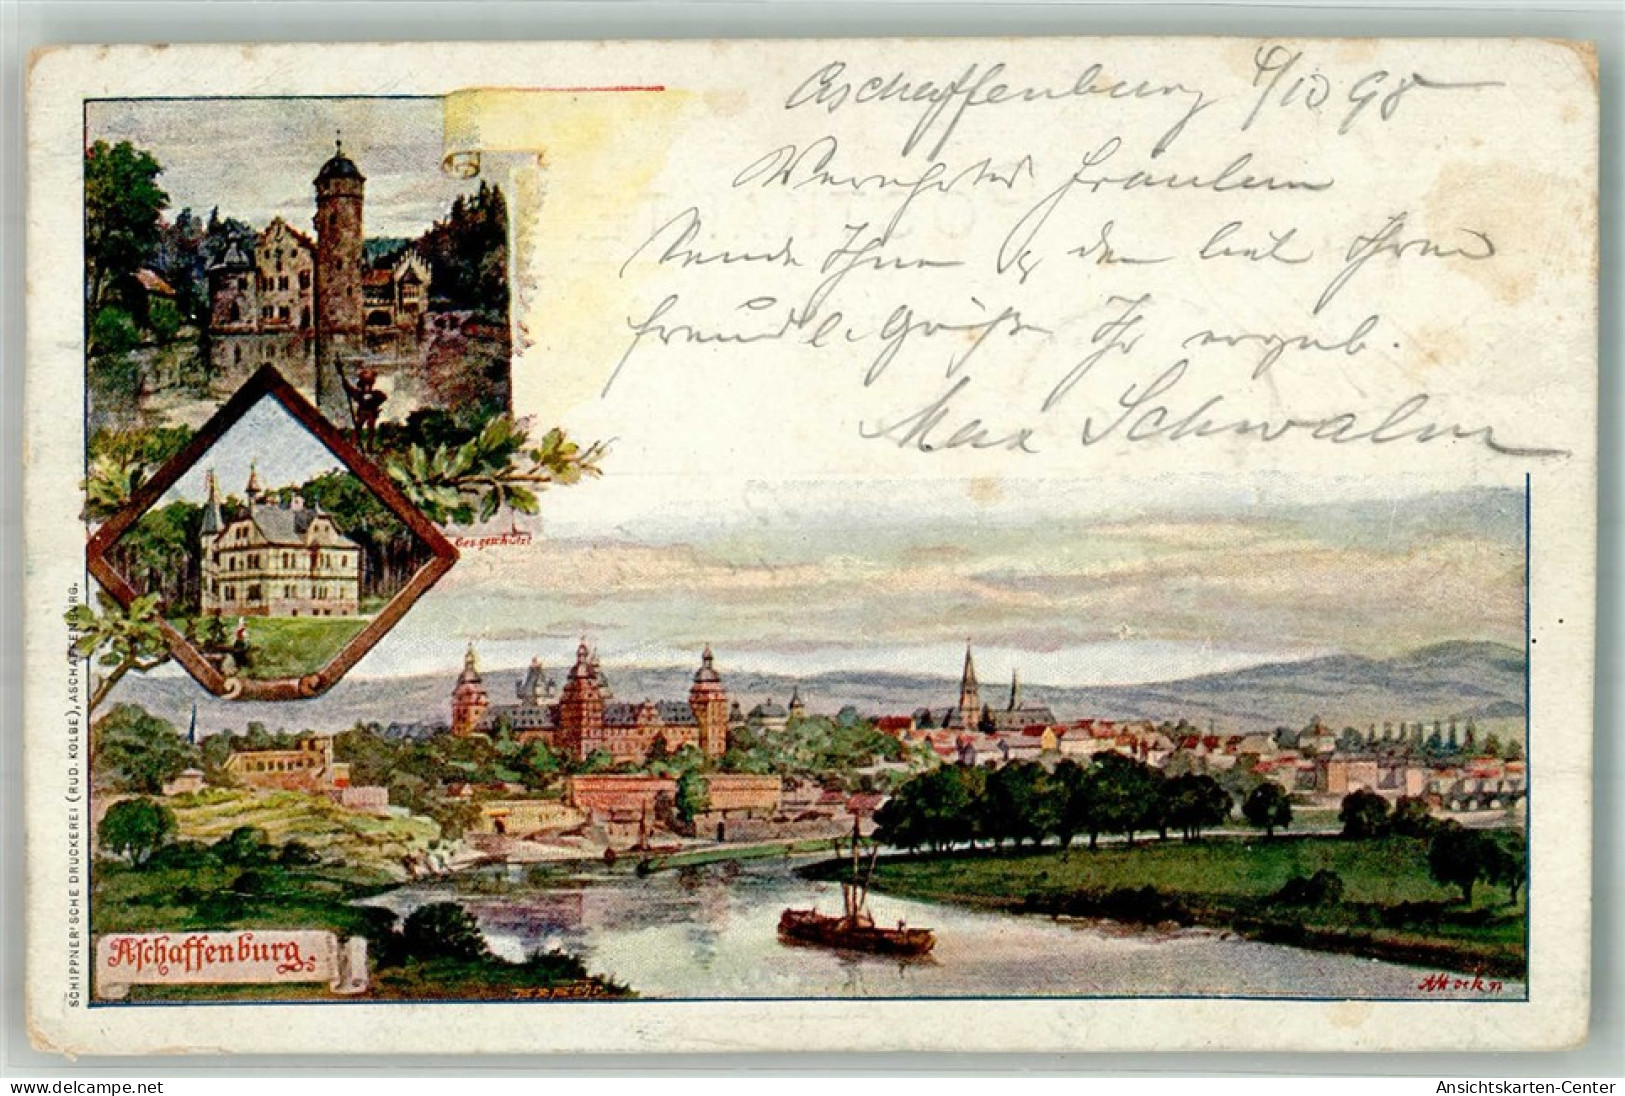 Aschaffenburg 9/10 98
Verehrtes Fräulein
Sende Ihnen den Ihren
freundl. Grüße Ihr ergeb.
Max Schwalm
Ges. geschützt
SCHIPPNER'SCHE DRUCKEREI (RUD. KOLBE), ASCHAFFENBURG.
Aschaffenburg.
delcampe.net
Ansichtskarten-Center